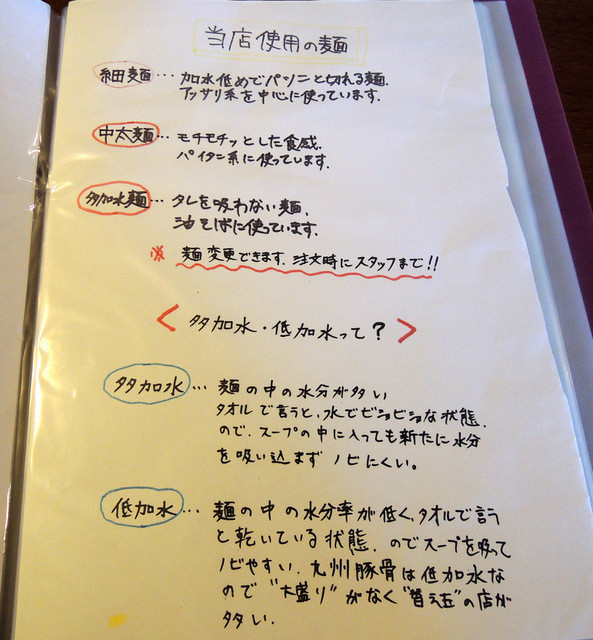 当店使用の麺
細麺…加水低めでパツンと切れる麺.
アッサリ系を中心に使っています.
中太麺…モチモチッとした食感.
パイタン系に使っています.
多加水麺…タレを吸わない麺.
油そばに使っています.
※ 麺変更できます. 注文時にスタッフまで!!
<多加水・低加水って?>
多加水…麺の中の水分が多い
タオルで言うと、水でビショビショな状態.
ので、スープの中に入っても新たに水分
を吸い込まず ノビにくい。
低加水…麺の中の水分率が低く、タオルで言う
と乾いている状態. のでスープを吸って
ノビやすい. 九州豚骨は低加水な
ので "大盛り" がなく "替え玉" の店が
多い.